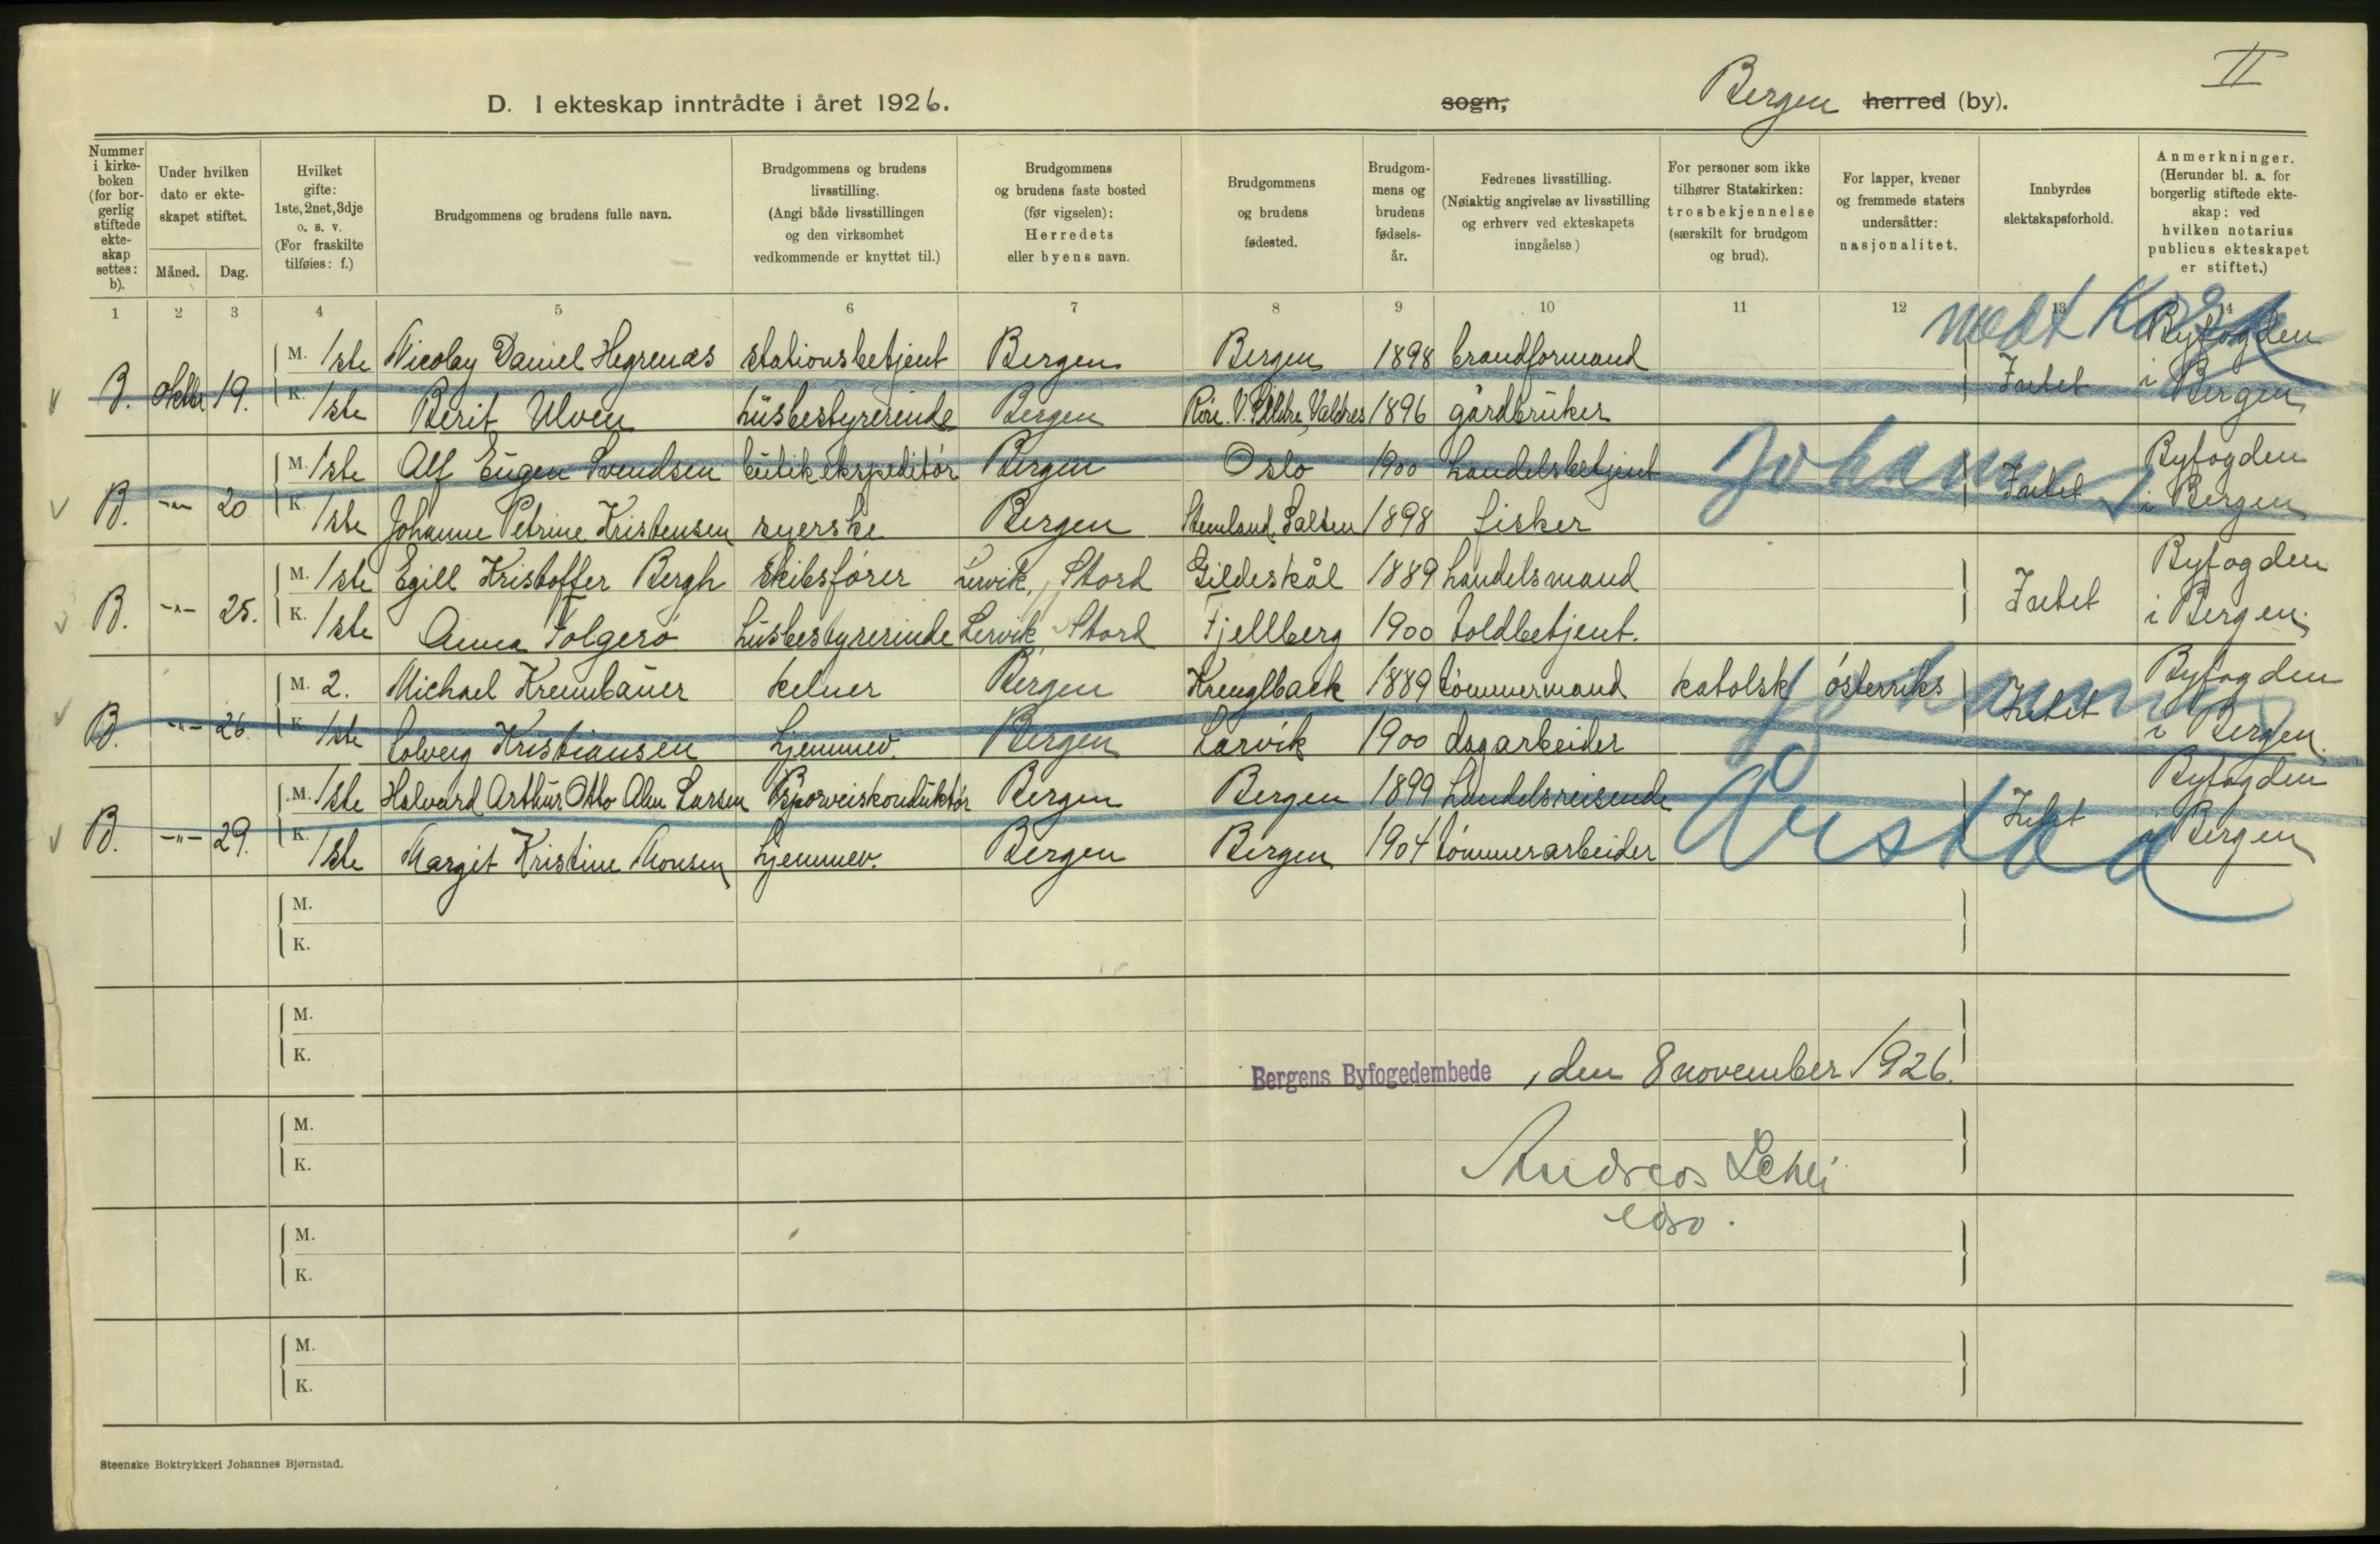 II
D. I ekteskap inntrådte i året 1926. sogn, Bergen herred (by).
Nummer i kirkeboken (for borgerlig stiftede ekteskap settes: b).
Under hvilken dato er ekteskapet stiftet.
Måned. Dag.
Hvilket gifte: 1ste, 2net, 3dje o. s. v. (For fraskilte tilføies: f.)
Brudgommens og brudens fulle navn.
Brudgommens og brudens livsstilling. (Angi både livsstillingen og den virksomhet vedkommende er knyttet til.)
Brudgommens og brudens faste bosted (før vigselen): Herredets eller byens navn.
Brudgommens og brudens fødested.
Brudgommens og brudens fødselsår.
Fedrenes livsstilling. (Nøiaktig angivelse av livsstilling og erhverv ved ekteskapets inngåelse)
For personer som ikke tilhører Statskirken: trosbekjennelse (særskilt for brudgom og brud).
For lapper, kvener og fremmede staters undersåtter: nasjonalitet.
Innbyrdes slektskapsforhold.
Anmerkninger. (Herunder bl. a. for borgerlig stiftede ekteskap: ved hvilken notarius publicus ekteskapet er stiftet.)
1 2 3 4 5 6 7 8 9 10 11 12 13 14
M. 1ste Nicolay Daniel Hegrenæs stationsbetjent Bergen Bergen 1898 brandformand Byfogden
B. Oktbr 19. K. 1ste Berit Ulven husbestyrerinde Bergen Valdres 1896 gårdbruker Intet i Bergen
M. 1ste Alf Eugen Svendsen butikekspeditør Bergen Oslo 1900 handelsbetjent Johannes Byfogden
B. -"- 20 K. 1ste Johanne Petrine Kristensen syerske Bergen Salten 1898 fisker Intet i Bergen
M. 1ste Egill Kristoffer Bergh skibsfører Lervik, Stord Gildeskål 1889 handelsmand Byfogden
B. -"- 25. K. 1ste Anna Folgerø husbestyrerinde Lervik Stord Fjellberg 1900 toldbetjent. Intet i Bergen.
M. 2. Michael Krennbauer kelner Bergen Krenglback 1889 tømmermand katolsk østerriks Byfogden
B. -"- 26. K. 1ste Solveig Kristiansen hjemmev. Bergen Larvik 1900 dagarbeider Intet i Bergen.
M. 1ste Halvard Arthur Otto Alm Larsen Sporveiskonduktør Bergen Bergen 1899 handelsreisende Byfogden
B. -"- 29. K. 1ste Margit Kristine Monsen hjemmev. Bergen Bergen 1904 tømmerarbeider Årstad Intet i Bergen
M.
K.
M.
K.
Bergens Byfogedembede, den 8 november 1926.
M.
K.
Andreas
M.
K.
M.
K.
Steenske Boktrykkeri Johannes Bjørnstad.